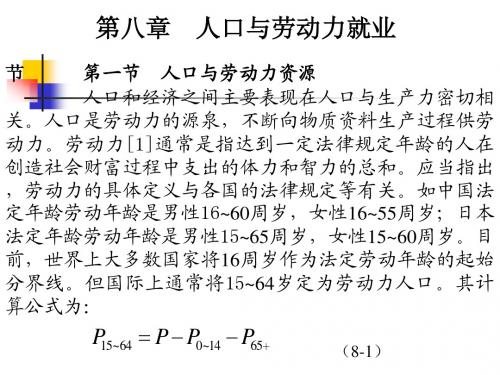 第八章　人口与劳动力就业
节　　第一节　人口与劳动力资源
人口和经济之间主要表现在人口与生产力密切相
关。人口是劳动力的源泉，不断向物质资料生产过程供劳
动力。劳动力[1]通常是指达到一定法律规定年龄的人在
创造社会财富过程中支出的体力和智力的总和。应当指出
，劳动力的具体定义与各国的法律规定等有关。如中国法
定年龄劳动年龄是男性16~60周岁，女性16~55周岁；日本
法定年龄劳动年龄是男性15~65周岁，女性15~60周岁。目
前，世界上大多数国家将16周岁作为法定劳动年龄的起始
分界线。但国际上通常将15~64岁定为劳动力人口。其计
算公式为：
P15~64 = P − P0~14 − P65+　　（8-1）